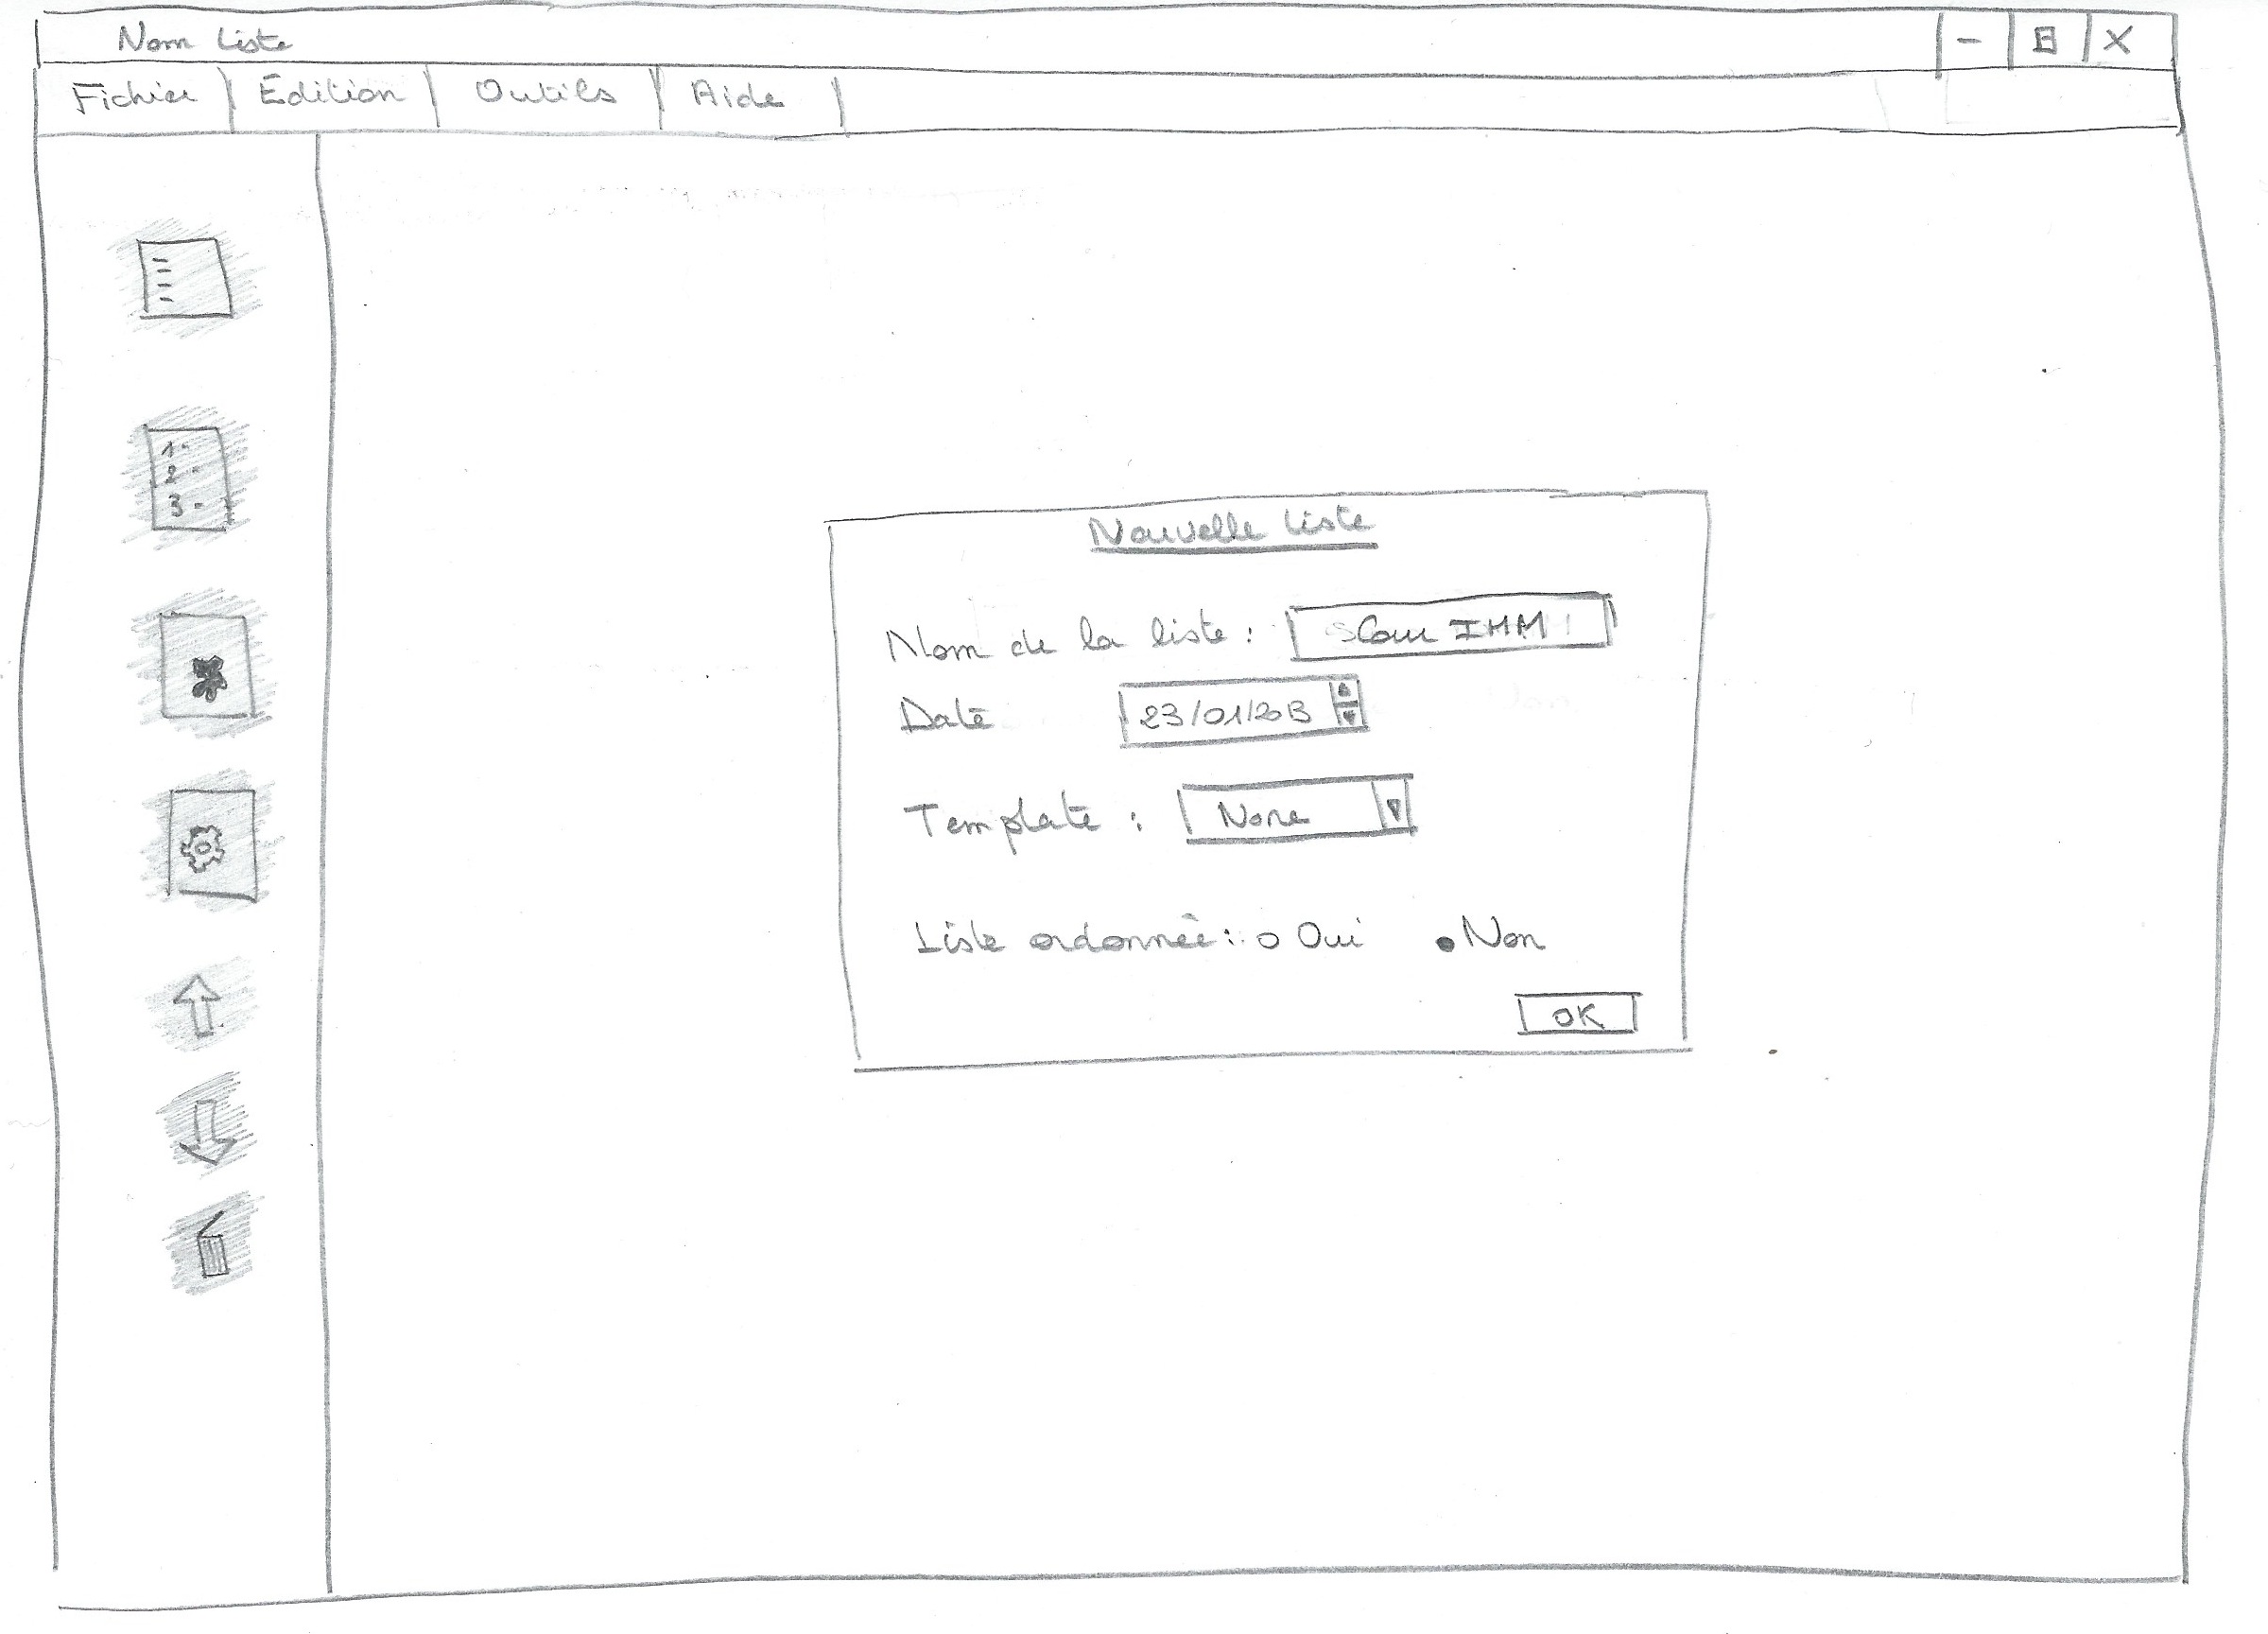 Nom Liste - X
Fichier Edition Outils Aide
1-
2-
3-
Nouvelle Liste
Nom de la liste : Cour IHM
Date 23/01/2013
Template : None
Liste ordonnée : Oui Non
OK